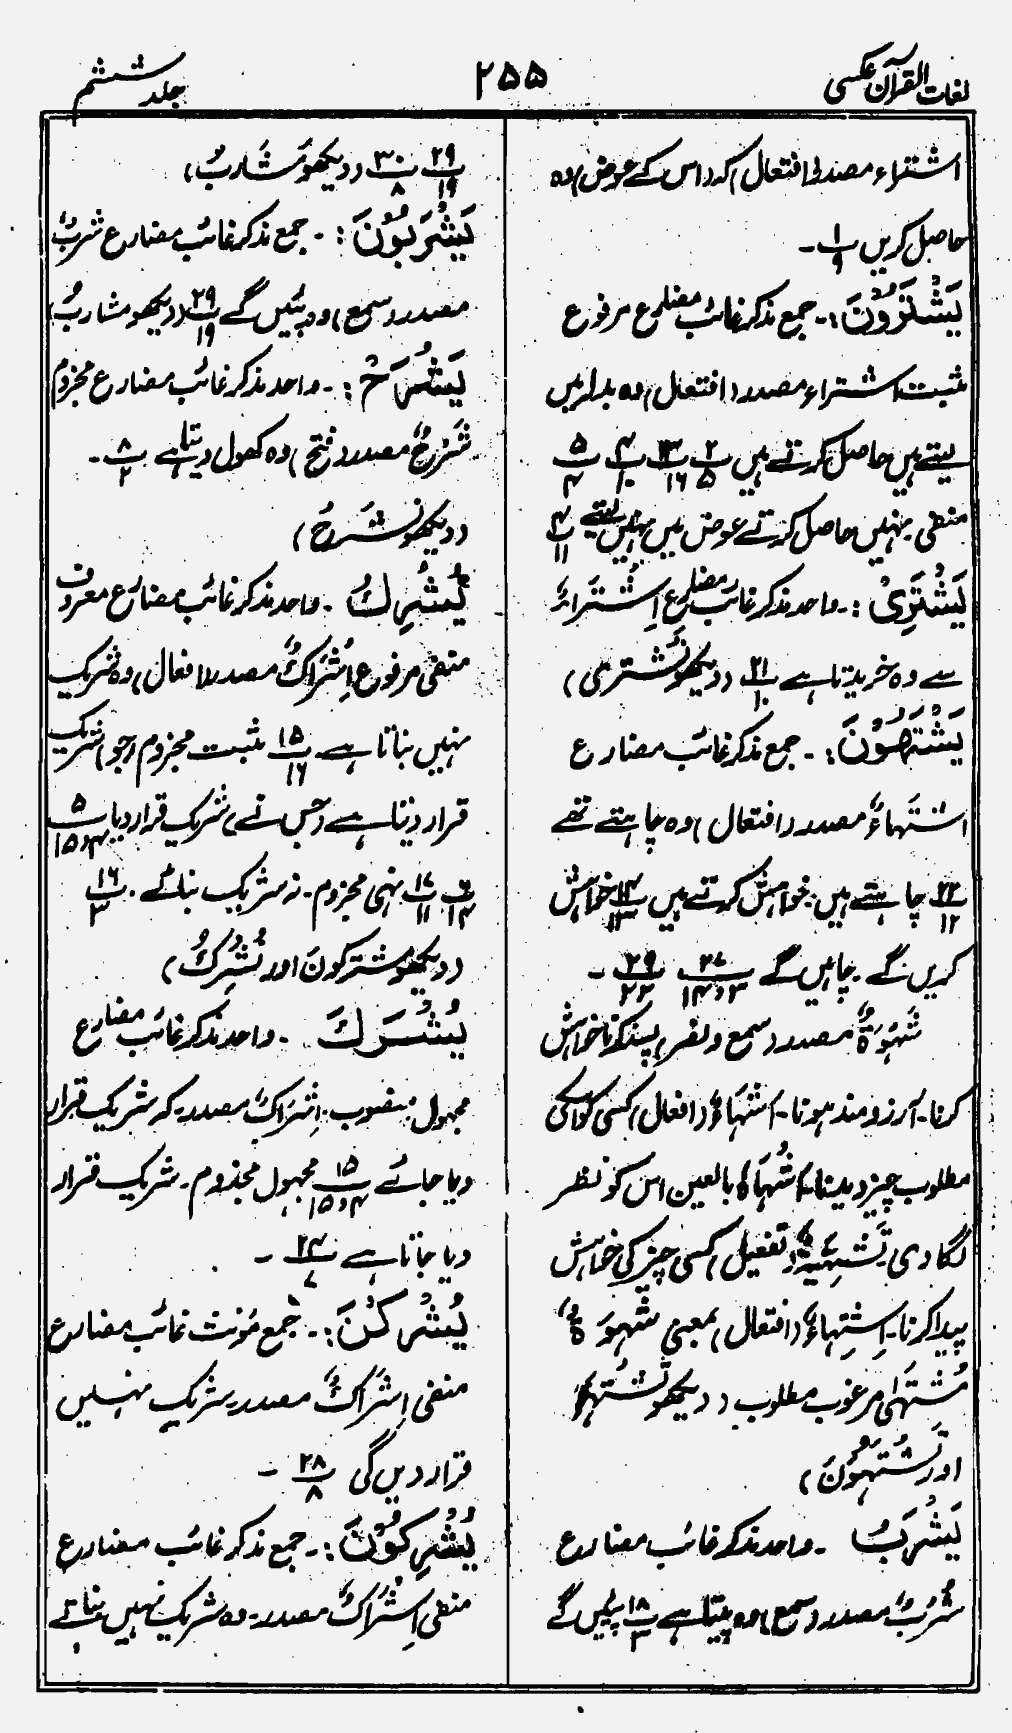 لغات القرآن عکسی
۲۵۵
جلد ششم
اشتراء مصدر (افتعال) کہ (اس کے عوض) وہ
حاصل کریں ۱/۹ ۔
یَشْتَرُوْنَ :۔ جمع مذکر غائب مضارع مرفوع
مثبت اشتراء مصدر (افتعال) وہ بدلہ میں
لیتے ہیں حاصل کرتے ہیں ۲/۵ ۳/۱۶ ۴/۱۰ ۵/۴
منفی۔ نہیں حاصل کرتے عوض میں نہیں لیتے ۴/۱۱
یَشْتَرِیْ :۔ واحد مذکر غائب مضارع اِشْتِرَاءٌ
سے وہ خریدتا ہے ۲۱/۱۰ (دیکھو نَشْتَرِی)
یَشْتَهُوْنَ :۔ جمع مذکر غائب مضارع
اشتہاءٌ مصدر (افتعال) وہ چاہتے تھے
۲۲/۱۲ چاہتے ہیں۔ خواہش کرتے ہیں ۱۴/۱۳ خواہش
کریں گے ۔ چاہیں گے ۲۷/۱۴،۳ ۲۹/۲۲ ۔
شَهْوَةٌ مصدر (سمع و نصر) پسند کرنا خواہش
کرنا۔ آرزو مند ہونا۔ اِشْهَاءٌ (افعال) کسی کو اسکی
مطلوب چیز دیدینا۔ اَشْهَاہُ بالعین اس کو نظر
لگا دی۔ تَشْهِیَةٌ (تفعیل) کسی چیز کی خواہش
پیدا کرنا۔ اِشْتِهَاءٌ (افتعال) بمعنی شَهْوَةٌ
مُشْتَهٰی مرغوب مطلوب (دیکھو تَشْتَهِیْ
اور تَشْتَهُوْنَ)
یَشْرَبُ ۔ واحد مذکر غائب مضارع
شُرْبٌ مصدر (سمع) وہ پیتا ہے ۱۸/۳ پئیں گے
۲۹/۱۹ ۳۰/۸ (دیکھو مَشَارِبُ)
یَشْرَبُوْنَ :۔ جمع مذکر غائب مضارع شُرْبٌ
مصدر (سمع) وہ پئیں گے ۲۹/۱۹ (دیکھو مشاربُ)
یَشْرَحْ :۔ واحد مذکر غائب مضارع مجزوم
شَرْحٌ مصدر (فتح) وہ کھول دیتا ہے ۸/۲ ۔
(دیکھو نَشْرَحْ)
یُشْرِكُ ۔ واحد مذکر غائب مضارع معروف
منفی مرفوع اِشْرَاكٌ مصدر (افعال) وہ شریک
نہیں بناتا ہے ۱۵/۱۶ مثبت مجزوم (جو) شریک
قرار دیتا ہے (جس نے) شریک قرار دیا ۵/۱۵،۴
۶/۱۴ ۱۷/۱۱ نہی مجزوم۔ نہ شریک بنائے ۔ ۱۶/۳
(دیکھو مشترکونَ اور نُشْرِكُ)
یُشْرَكَ ۔ واحد مذکر غائب مضارع
مجہول منصوب۔ اِشْرَاكٌ مصدر۔ کہ شریک قرار
دیا جائے ۱۵/۱۵،۴ مجہول مجذوم۔ شریک قرار
دیا جاتا ہے ۲۴/۷ ۔
یُشْرِكْنَ :۔ جمع مؤنث غائب مضارع
منفی اِشْرَاكٌ مصدر۔ شریک نہیں
قرار دیں گی ۲۸/۸ ۔
یُشْرِكُوْنَ :۔ جمع مذکر غائب مضارع
منفی اِشْرَاكٌ مصدر۔ وہ شریک نہیں بناتے